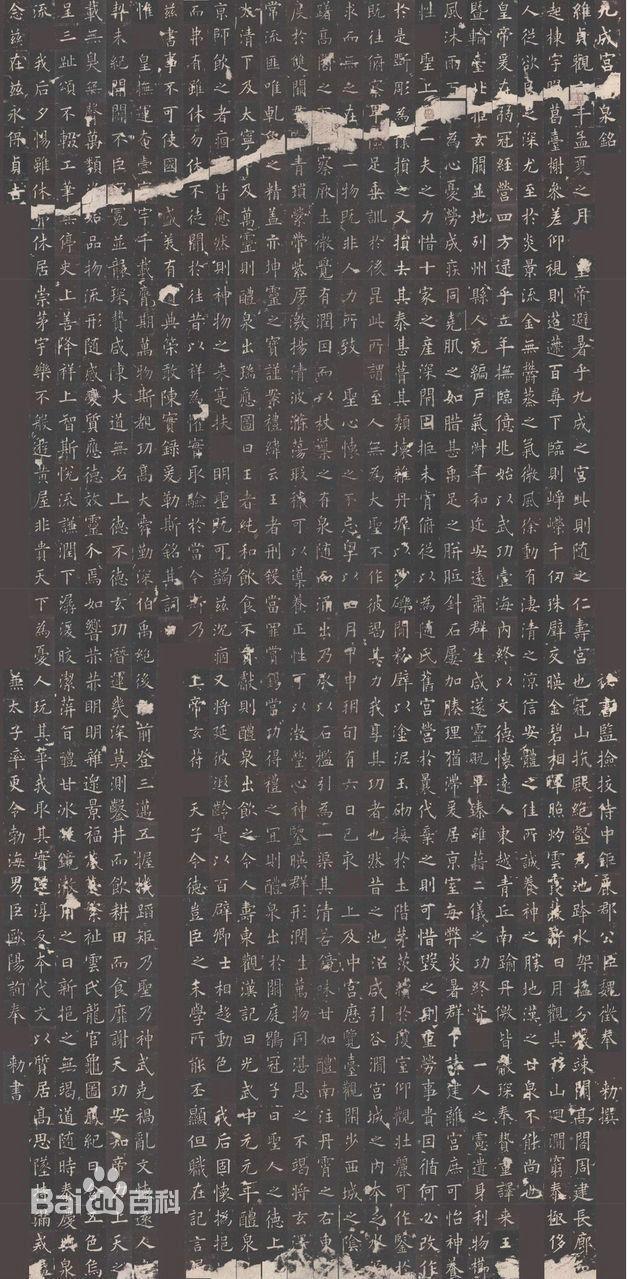 九成宮泉銘 祕書監檢挍侍中鉅鹿郡公臣魏徵奉 勑撰
維貞觀年孟夏之月 皇帝避暑乎九成之宮此則隨之仁壽宮也冠山抗殿絕壑為池跨水架楹分巖竦闕高閣周建長廊四
起棟宇膠葛臺榭參差仰視則迢遰百尋下臨則崢嶸千仞珠璧交暎金碧相暉照灼雲霞蔽虧日月觀其移山迴澗窮泰極侈
人從欲良足深尤至於炎景流金無鬱蒸之氣微風徐動有淒清之涼信安體之佳所誠養神之勝地漢之甘泉不能尚也
皇帝爰在弱冠經營四方逮乎立年撫臨億兆始以武功壹海內終以文德懷遠人東越青丘南踰丹徼皆獻琛奉贄重譯來王
暨輪臺北拒玄闕並地列州縣人充編戶氣淑年和迩安遠肅群生咸遂靈貺畢臻雖藉二儀之功終資 一人之慮遺身利物櫛
風沐雨為心憂勞成疾同堯肌之如腊甚禹足之胼胝針石屢加腠理猶滯爰居京室每弊炎暑群下請建離宮庶可怡神養
性 聖上一夫之力惜十家之產深閉固拒未肯俯從以為隨氏舊宮營於曩代棄之則可惜毀之則重勞事貴因循何必改作
於是斲彫為損之又損去其泰甚葺其頹壞雜丹墀以沙礫間粉壁以塗泥玉砌接於土階茅茨續於瓊室仰觀壯麗可作鑒於
既往俯察卑儉足垂訓於後昆此所謂至人無為大聖不作彼竭其力我享其功者也然昔之池沼咸引谷澗宮城之內本乏水
求而無之在一物既非人力所致 聖心懷之不忘粵以四月甲申朔旬有六日己亥 上及中宮歷覽臺觀閑步西城之陰
躇高閣之察厥土微覺有潤因而以杖導之有泉隨而涌出乃承以石檻引為一渠其清若鏡味甘如醴南注丹霄之右東
度於雙闕青瑣縈帶紫房激揚清波滌蕩瑕穢可以導養正性可以澂瑩心神鑒暎群形潤生萬物同湛恩之不竭將玄
常流匪唯乾象之精蓋亦坤靈之寶謹案禮緯云王者刑殺當罪賞錫當功得禮之宜則醴泉出於闕庭鶡冠子曰聖人之德上
太清下及太寧中及萬靈則醴泉出瑞應圖曰王者純和飲食不貢獻則醴泉出飲之令人壽東觀漢記曰光武中元元年醴泉
京師飲之者痼皆愈然則神物之來寔扶 明聖既可蠲茲沉痼又將延彼遐齡是以百辟卿士相趨動色 我后固懷撝挹
而弗有雖休勿休不徒聞於往昔以祥為懼實取驗於當今斯乃 上帝玄符 天子令德豈臣之末學所能丕顯但職在記言
茲書事不可使國盛美有遺典策敢陳實錄爰勒斯銘其詞
惟 皇撫運奄壹宇千載膺期萬物斯覩功高大舜勤深伯禹絕後前登三邁五握機蹈矩乃聖乃神武克禍亂文懷遠人
契未紀開闢不臣冠冕並襲琛贄咸陳大道無名上德不德玄功潛運幾深莫測鑿井而飲耕田而食靡謝天功安知帝力上天之
載無臭無聲萬類資始品物流形隨感變質應德效靈介焉如響赫赫明明雜遝景福葳蕤繁祉雲氏龍官龜圖鳳紀日含五色烏
呈三趾頌不輟工筆無停史上善降祥上智斯悅流謙潤下潺湲皎潔蓱旨醴甘冰凝鏡澈用之日新挹之無竭道隨時泰慶與泉
流 我后夕惕雖休弗休居崇茅宇樂不般遊黃屋非貴天下為憂人玩其華我取其實還淳反本代文以質居高思墜持滿戒
念茲在茲永保貞吉 兼太子率更令勃海男臣歐陽詢奉 勑書
Bai百科